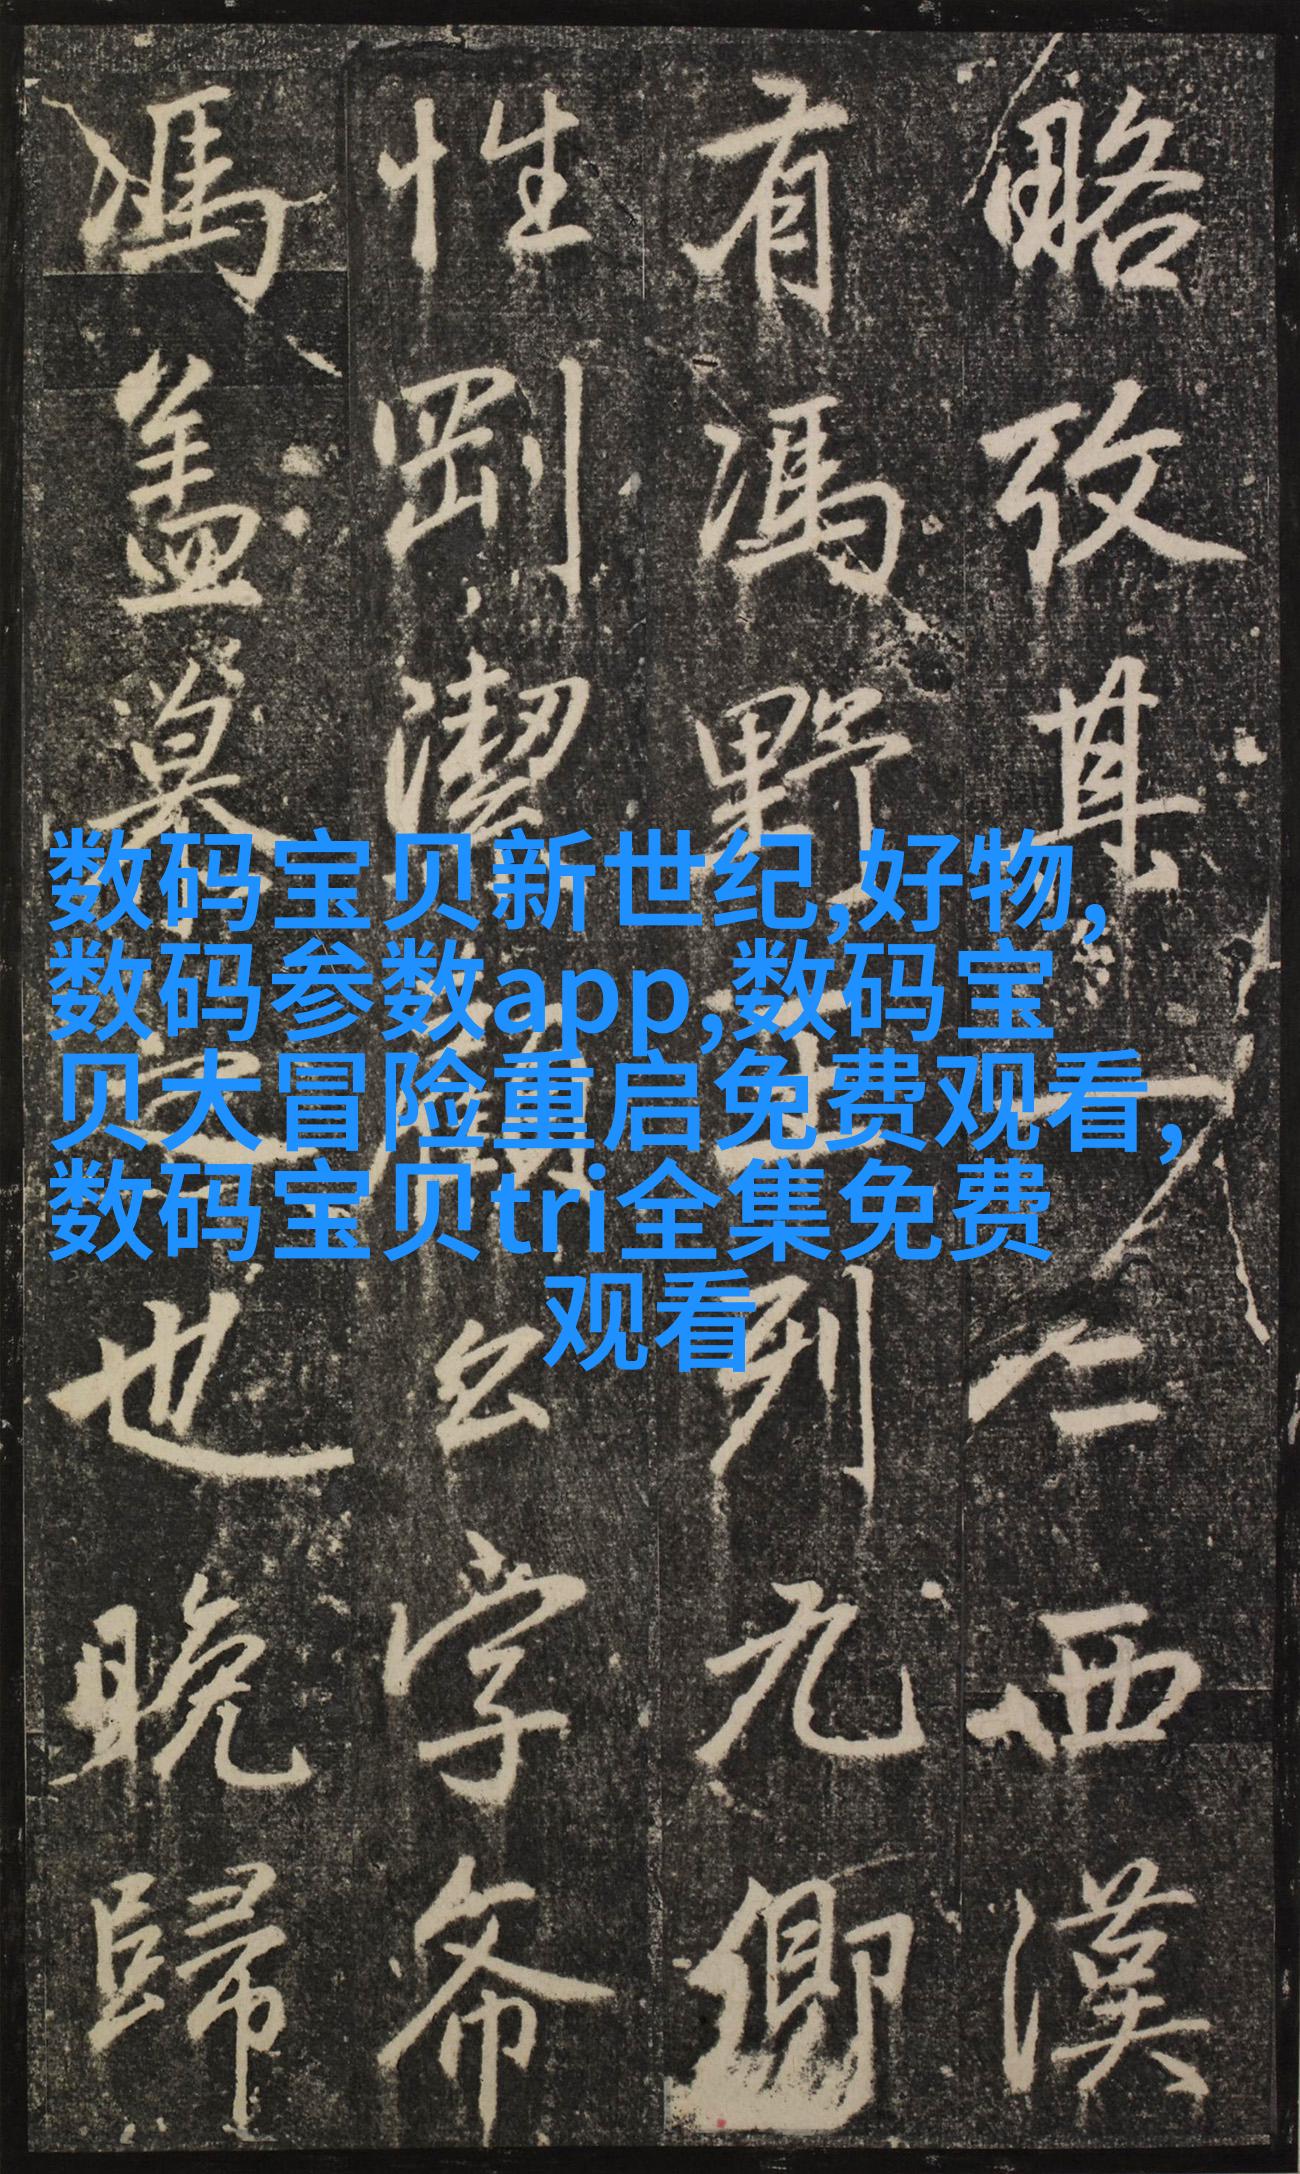 略攷其一二西漢
有馮野王列九卿
性剛潔顧公字希
馮盖慕之也晚歸
数码宝贝新世纪,好物,
数码参数app,数码宝
贝大冒险重启免费观看,
数码宝贝tri全集免费
观看